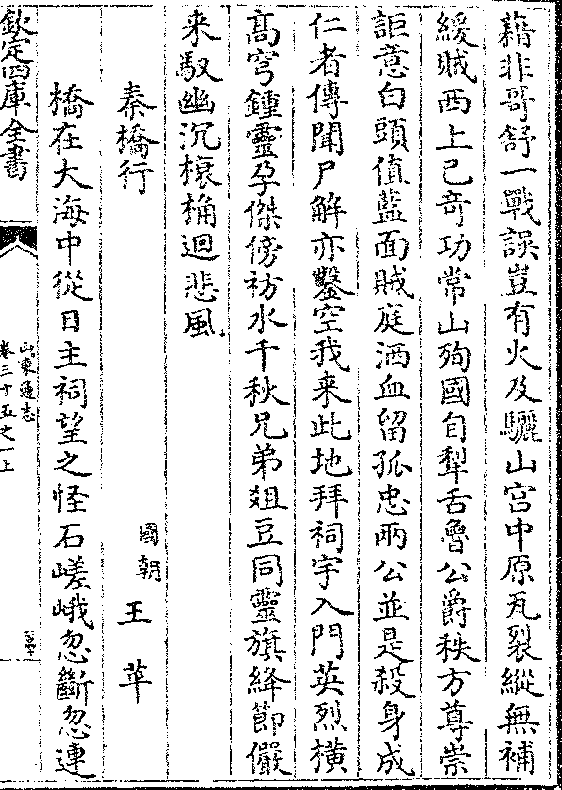 藉非哥舒一戰誤豈有火及驪山宫中原瓦裂縱無補
緩賊西上已竒功常山殉國自犁舌魯公爵秩方尊崇
詎意白頭值藍面賊庭洒血留孤忠兩公並是殺身成
仁者傳聞尸解亦鑿空我来此地拜祠宇入門英烈橫
髙穹鍾靈孕傑傍祊水千秋兄弟俎豆同靈旗絳節儼
来馭幽沉榱桷迴悲風
秦橋行
國朝王苹
橋在大海中從日主祠望之怪石嵯峨忽斷忽連
欽定四庫全書
山東通志
卷三十五之一上